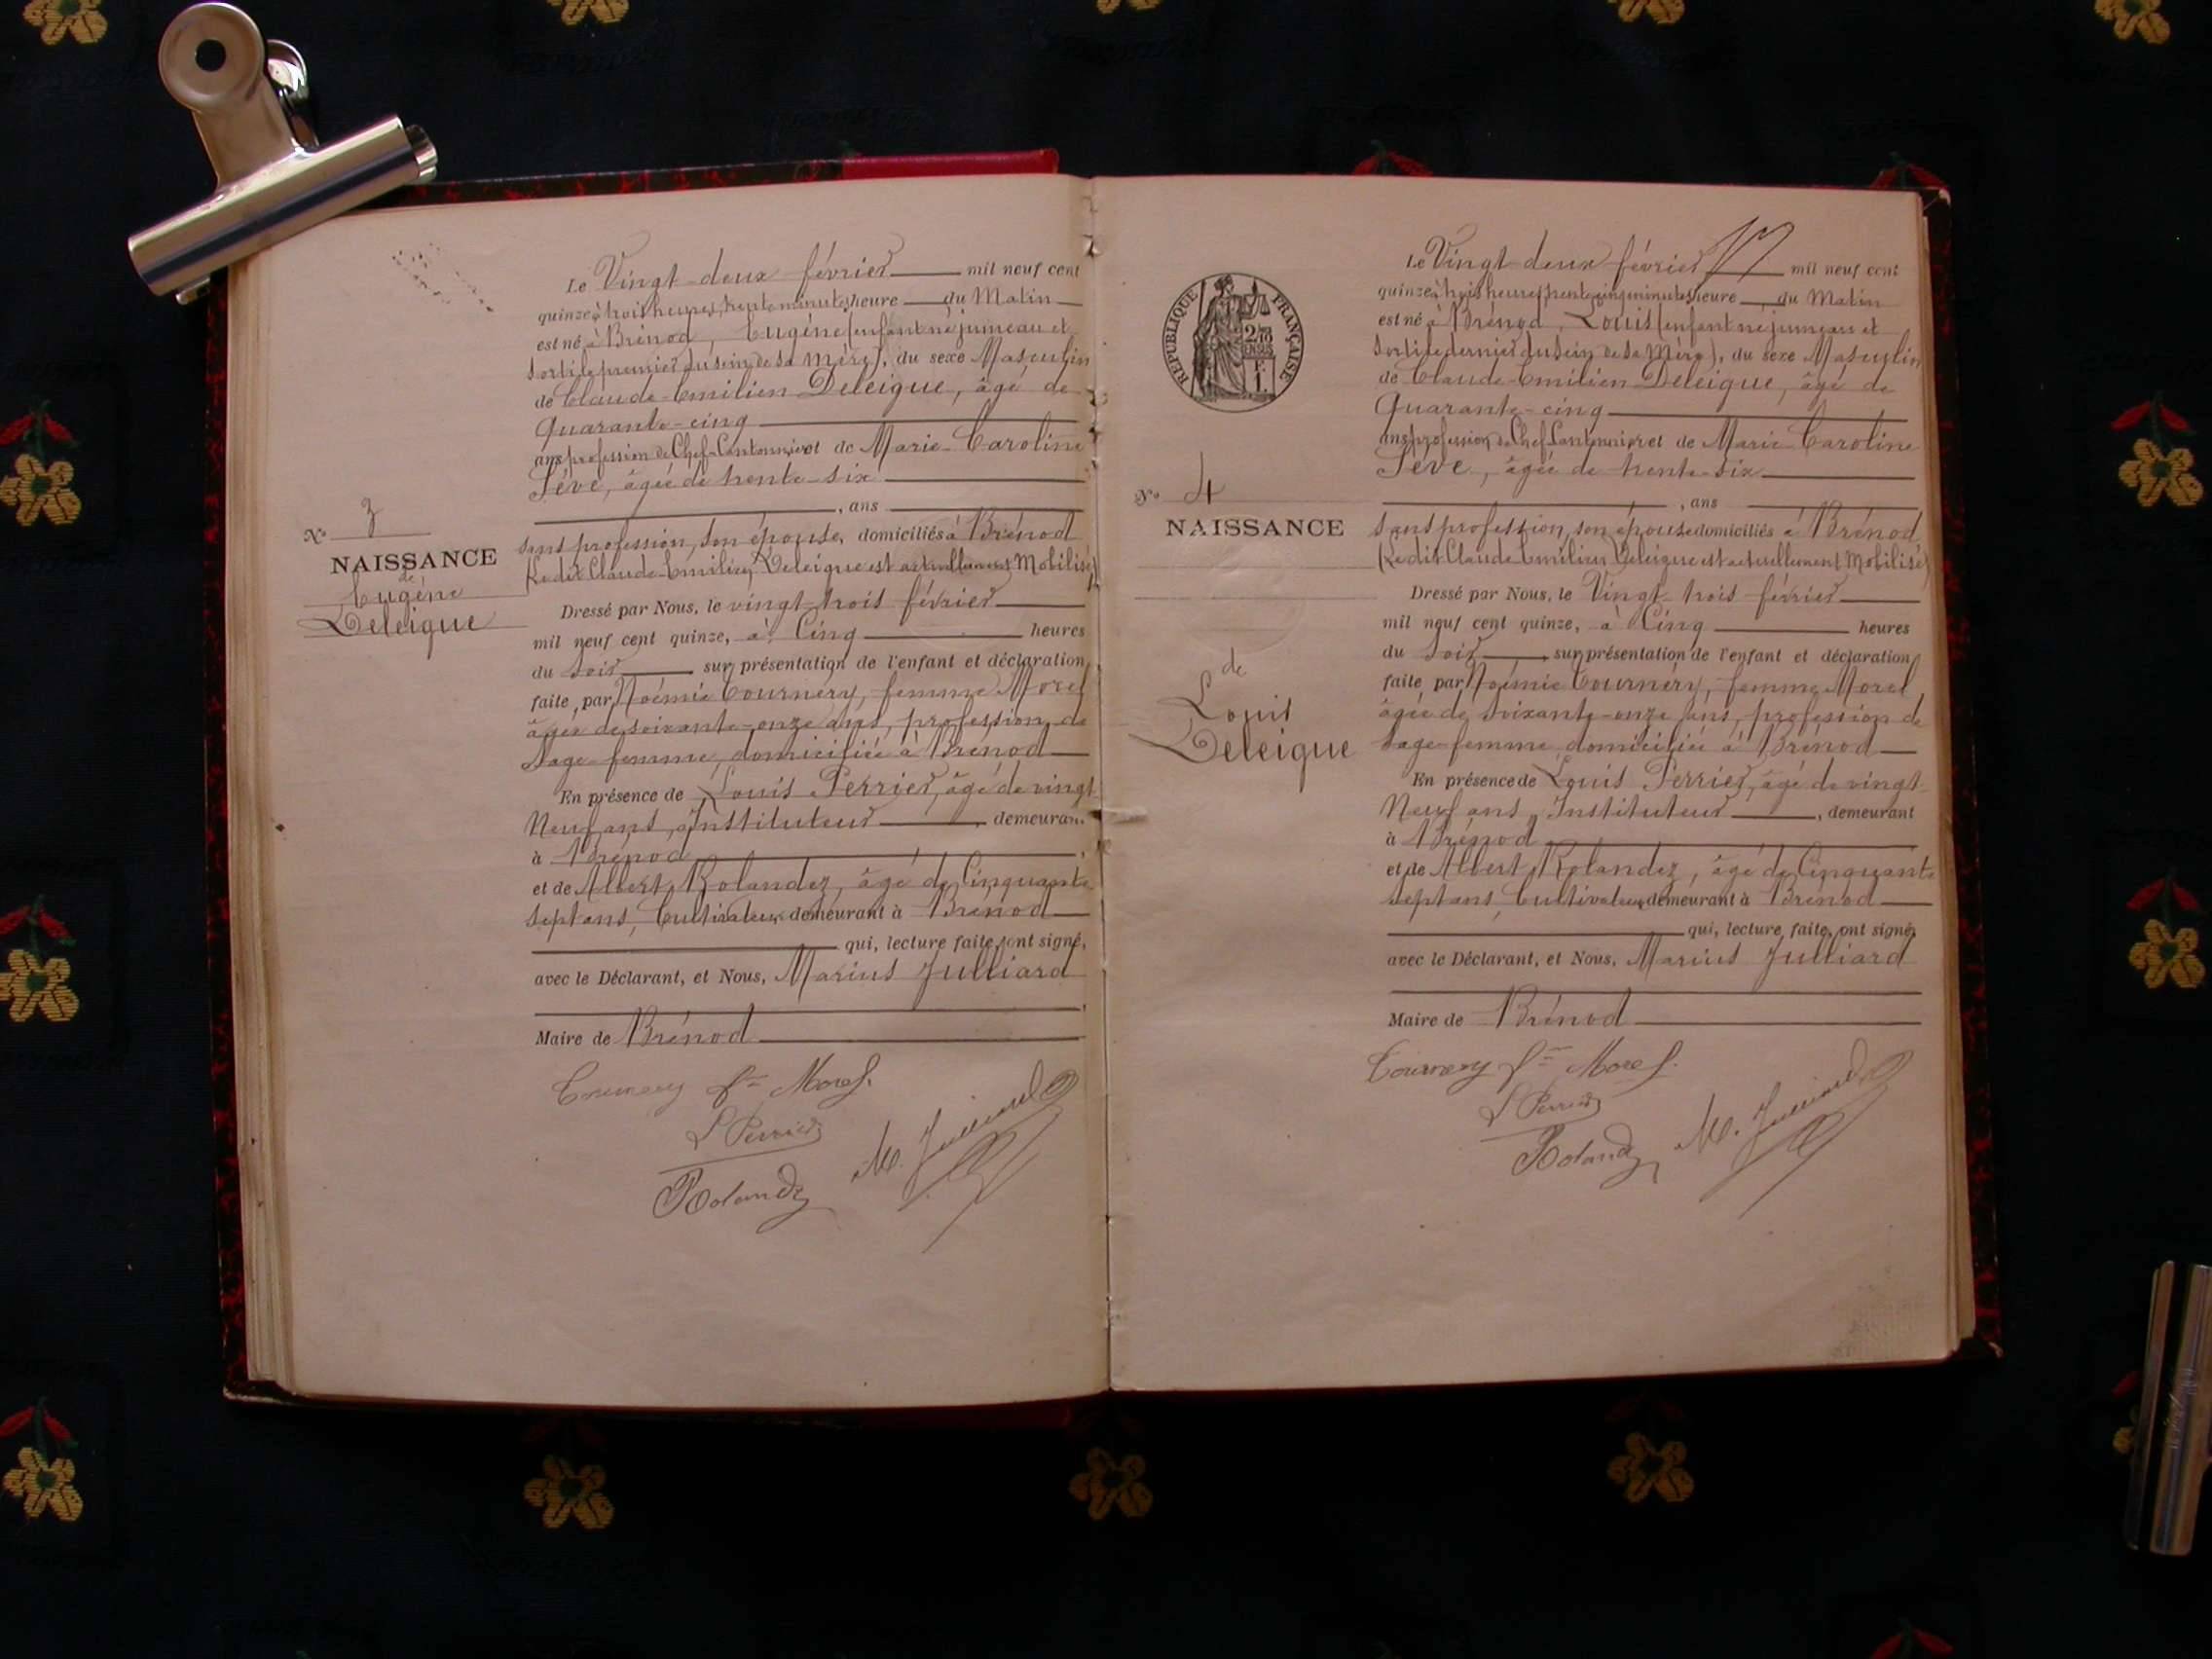 Le Vingt-deux février mil neuf cent
quinze à trois heures, trente minutes heure du Matin
est né à Brénod, Eugène (enfant né jumeau et
sorti le premier du sein de sa mère), du sexe Masculin
de Claude-Emilien Deleigue, âgé de
Quarante-cinq
ans profession de Chef-Cantonnier et de Marie-Caroline
Sève, âgée de trente-six
, ans
sans profession, son épouse, domiciliés à Brénod
(Le dit Claude-Emilien Deleigue est actuellement Mobilisé)
No 3
NAISSANCE
de
Eugène
Deleigue
Dressé par Nous, le vingt-trois février
mil neuf cent quinze, à Cinq heures
du soir sur présentation de l'enfant et déclaration
faite par Noémie Tournery, femme Morel
âgée de soixante-onze ans, profession de
Sage-femme, domiciliée à Brénod
En présence de Louis Perrier, âgé de vingt-
Neuf ans, Instituteur, demeurant
à Brénod
et de Albert Rolandez, âgé de Cinquante
sept ans, Cultivateur demeurant à Brénod
qui, lecture faite, ont signé,
avec le Déclarant, et Nous, Marius Julliard
Maire de Brénod
Tournery fe Morel.
L Perrier
M. Julliard
Rolandz
RÉPUBLIQUE FRANÇAISE
2/10
EN SUS
F.
1.
Le Vingt-deux février mil neuf cent
quinze à trois heures trente cinq minutes heure du Matin
est né à Brénod, Louis (enfant né jumeau et
sorti le dernier du sein de sa Mère), du sexe Masculin
de Claude-Emilien Deleigue, âgé de
Quarante-cinq
ans profession de Chef Cantonnier et de Marie Caroline
Sève, âgée de trente-six
, ans
sans profession, son épouse domiciliés à Brénod
(Le dit Claude Emilien Deleigue est actuellement Mobilisé)
No 4
NAISSANCE
de
Louis
Deleigue
Dressé par Nous, le Vingt-trois février
mil neuf cent quinze, à Cinq heures
du soir, sur présentation de l'enfant et déclaration
faite par Noémie Tournery, femme Morel
âgée de soixante-onze ans, profession de
sage-femme domiciliée à Brénod
En présence de Louis Perrier, âgé de vingt-
Neuf ans, Instituteur, demeurant
à Brénod
et de Albert Rolandez, âgé de Cinquante
sept ans, Cultivateur demeurant à Brénod
qui, lecture faite, ont signé,
avec le Déclarant, et Nous, Marius Julliard
Maire de Brénod
Tournery fe Morel.
L Perrier
M. Julliard
Rolandz